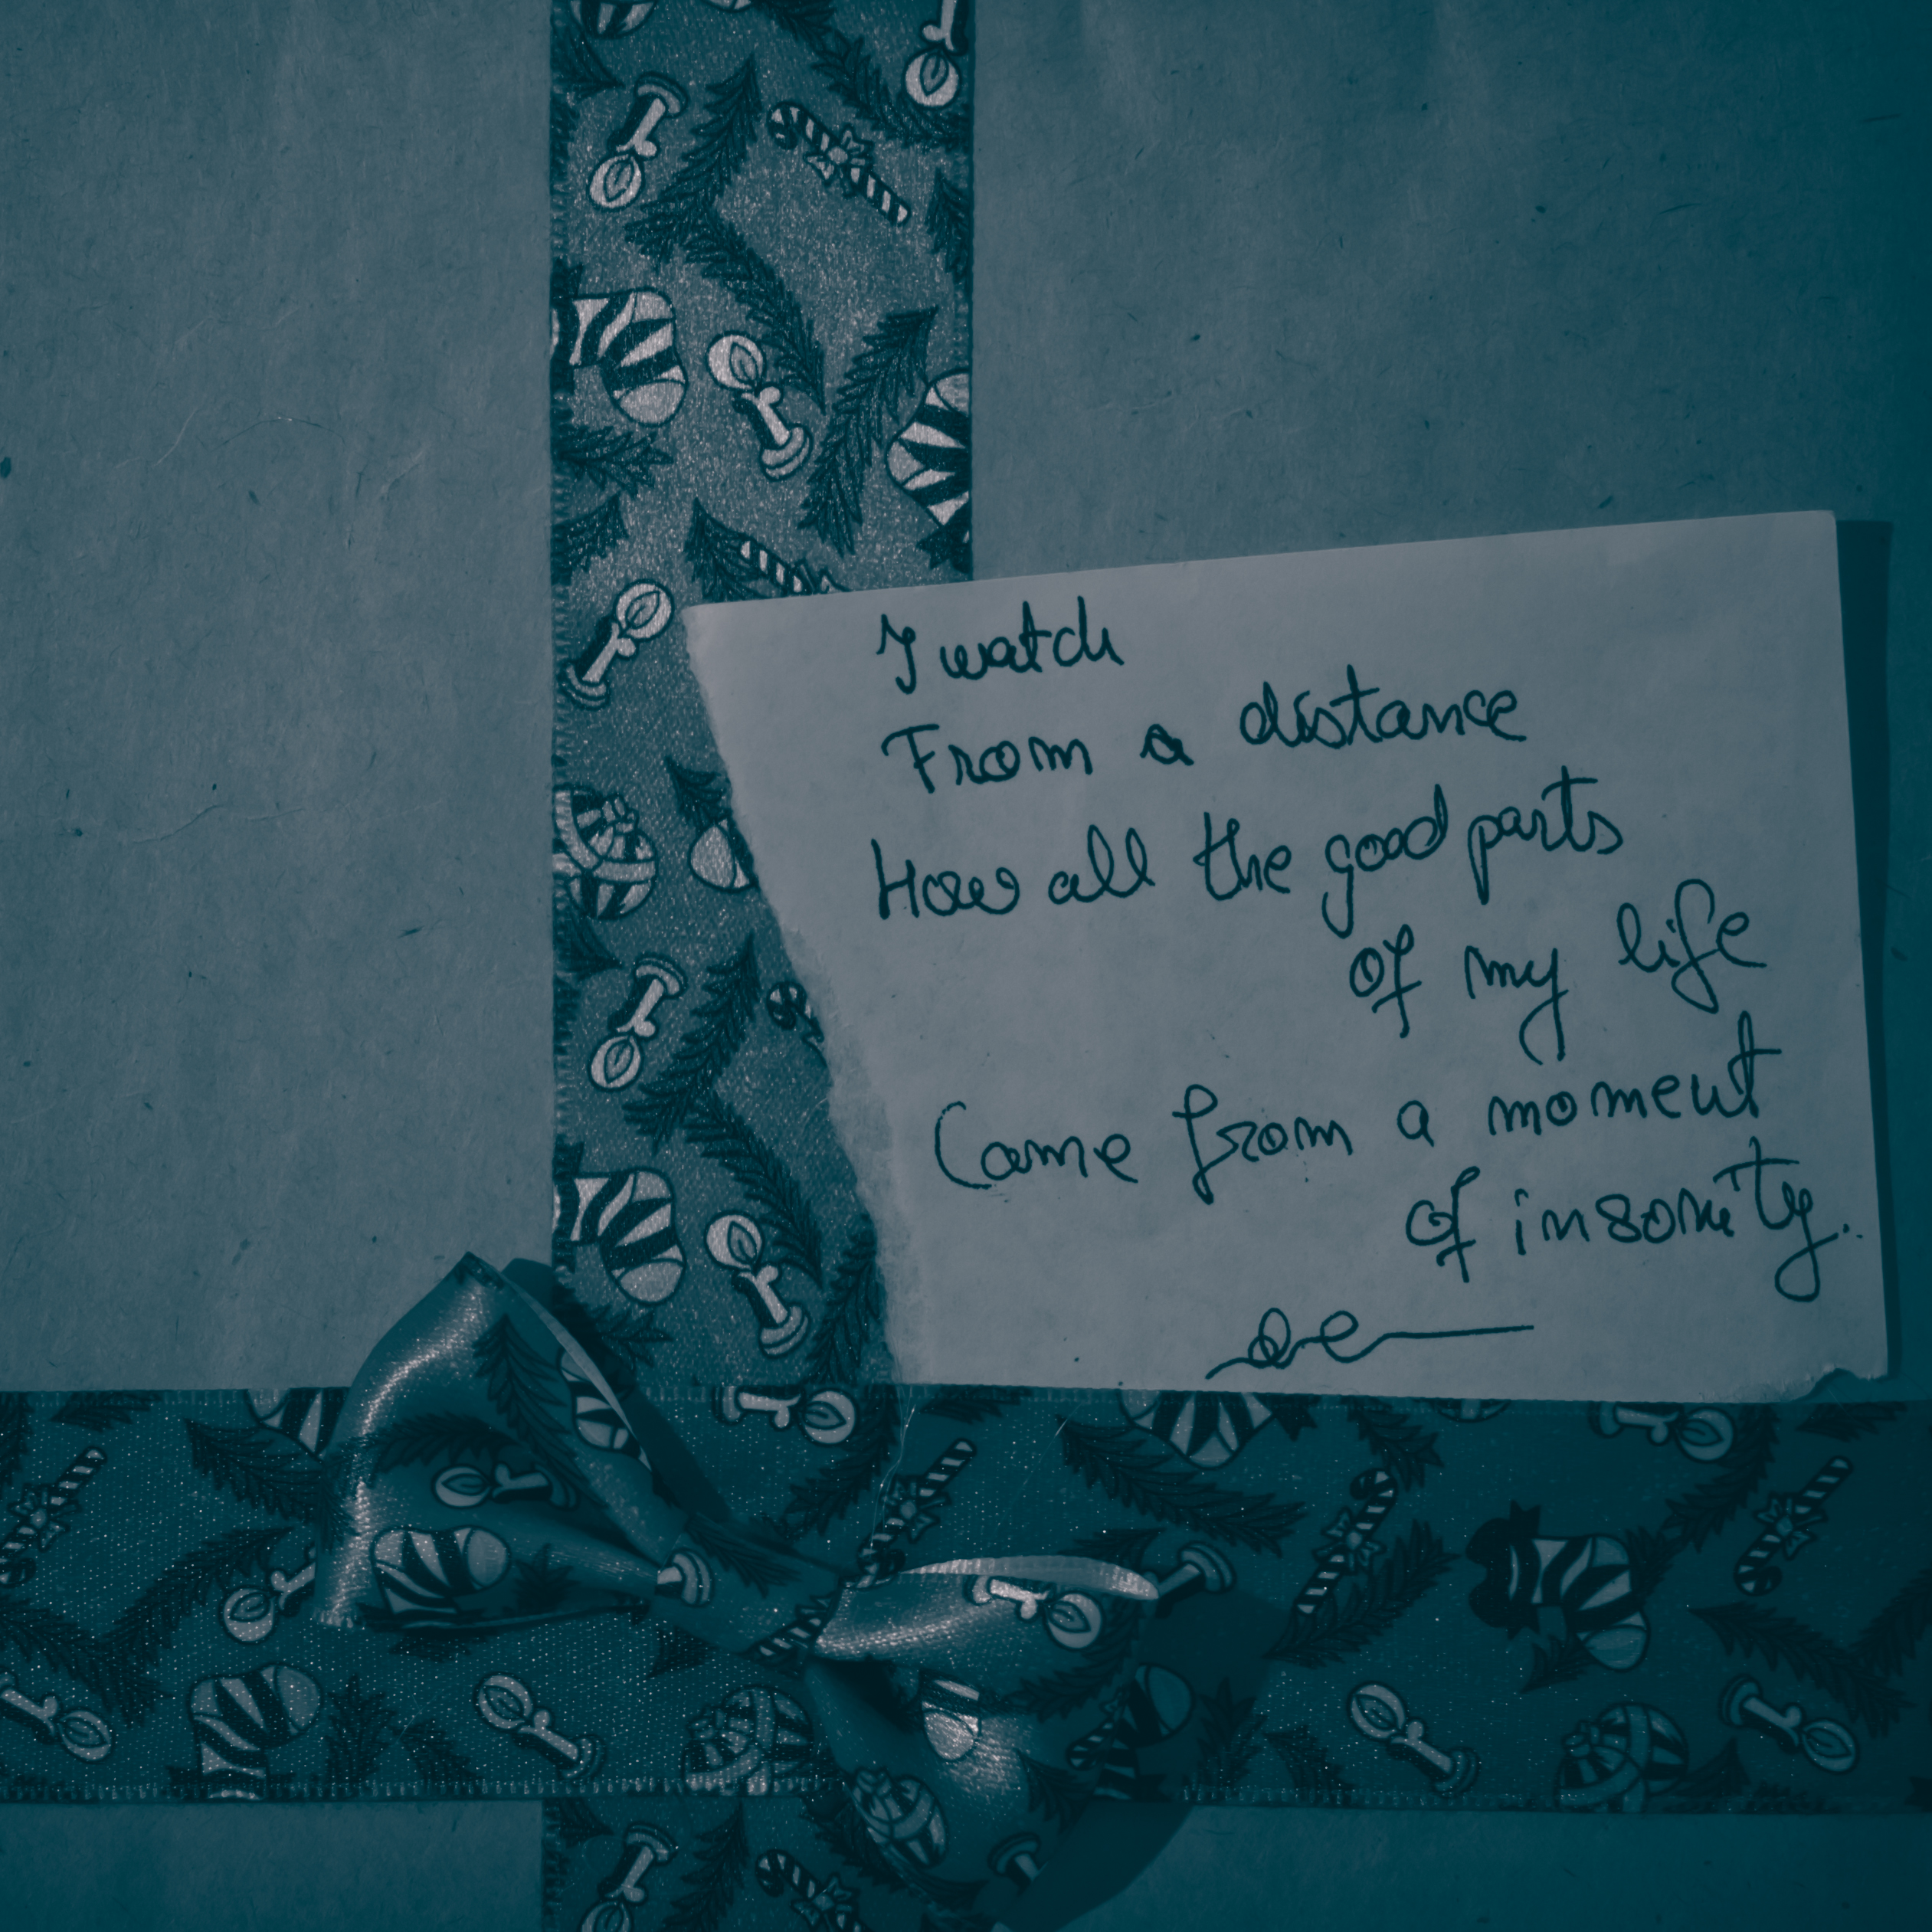 I watch
From a distance
How all the good parts
of my life
Came from a moment
of insanity.